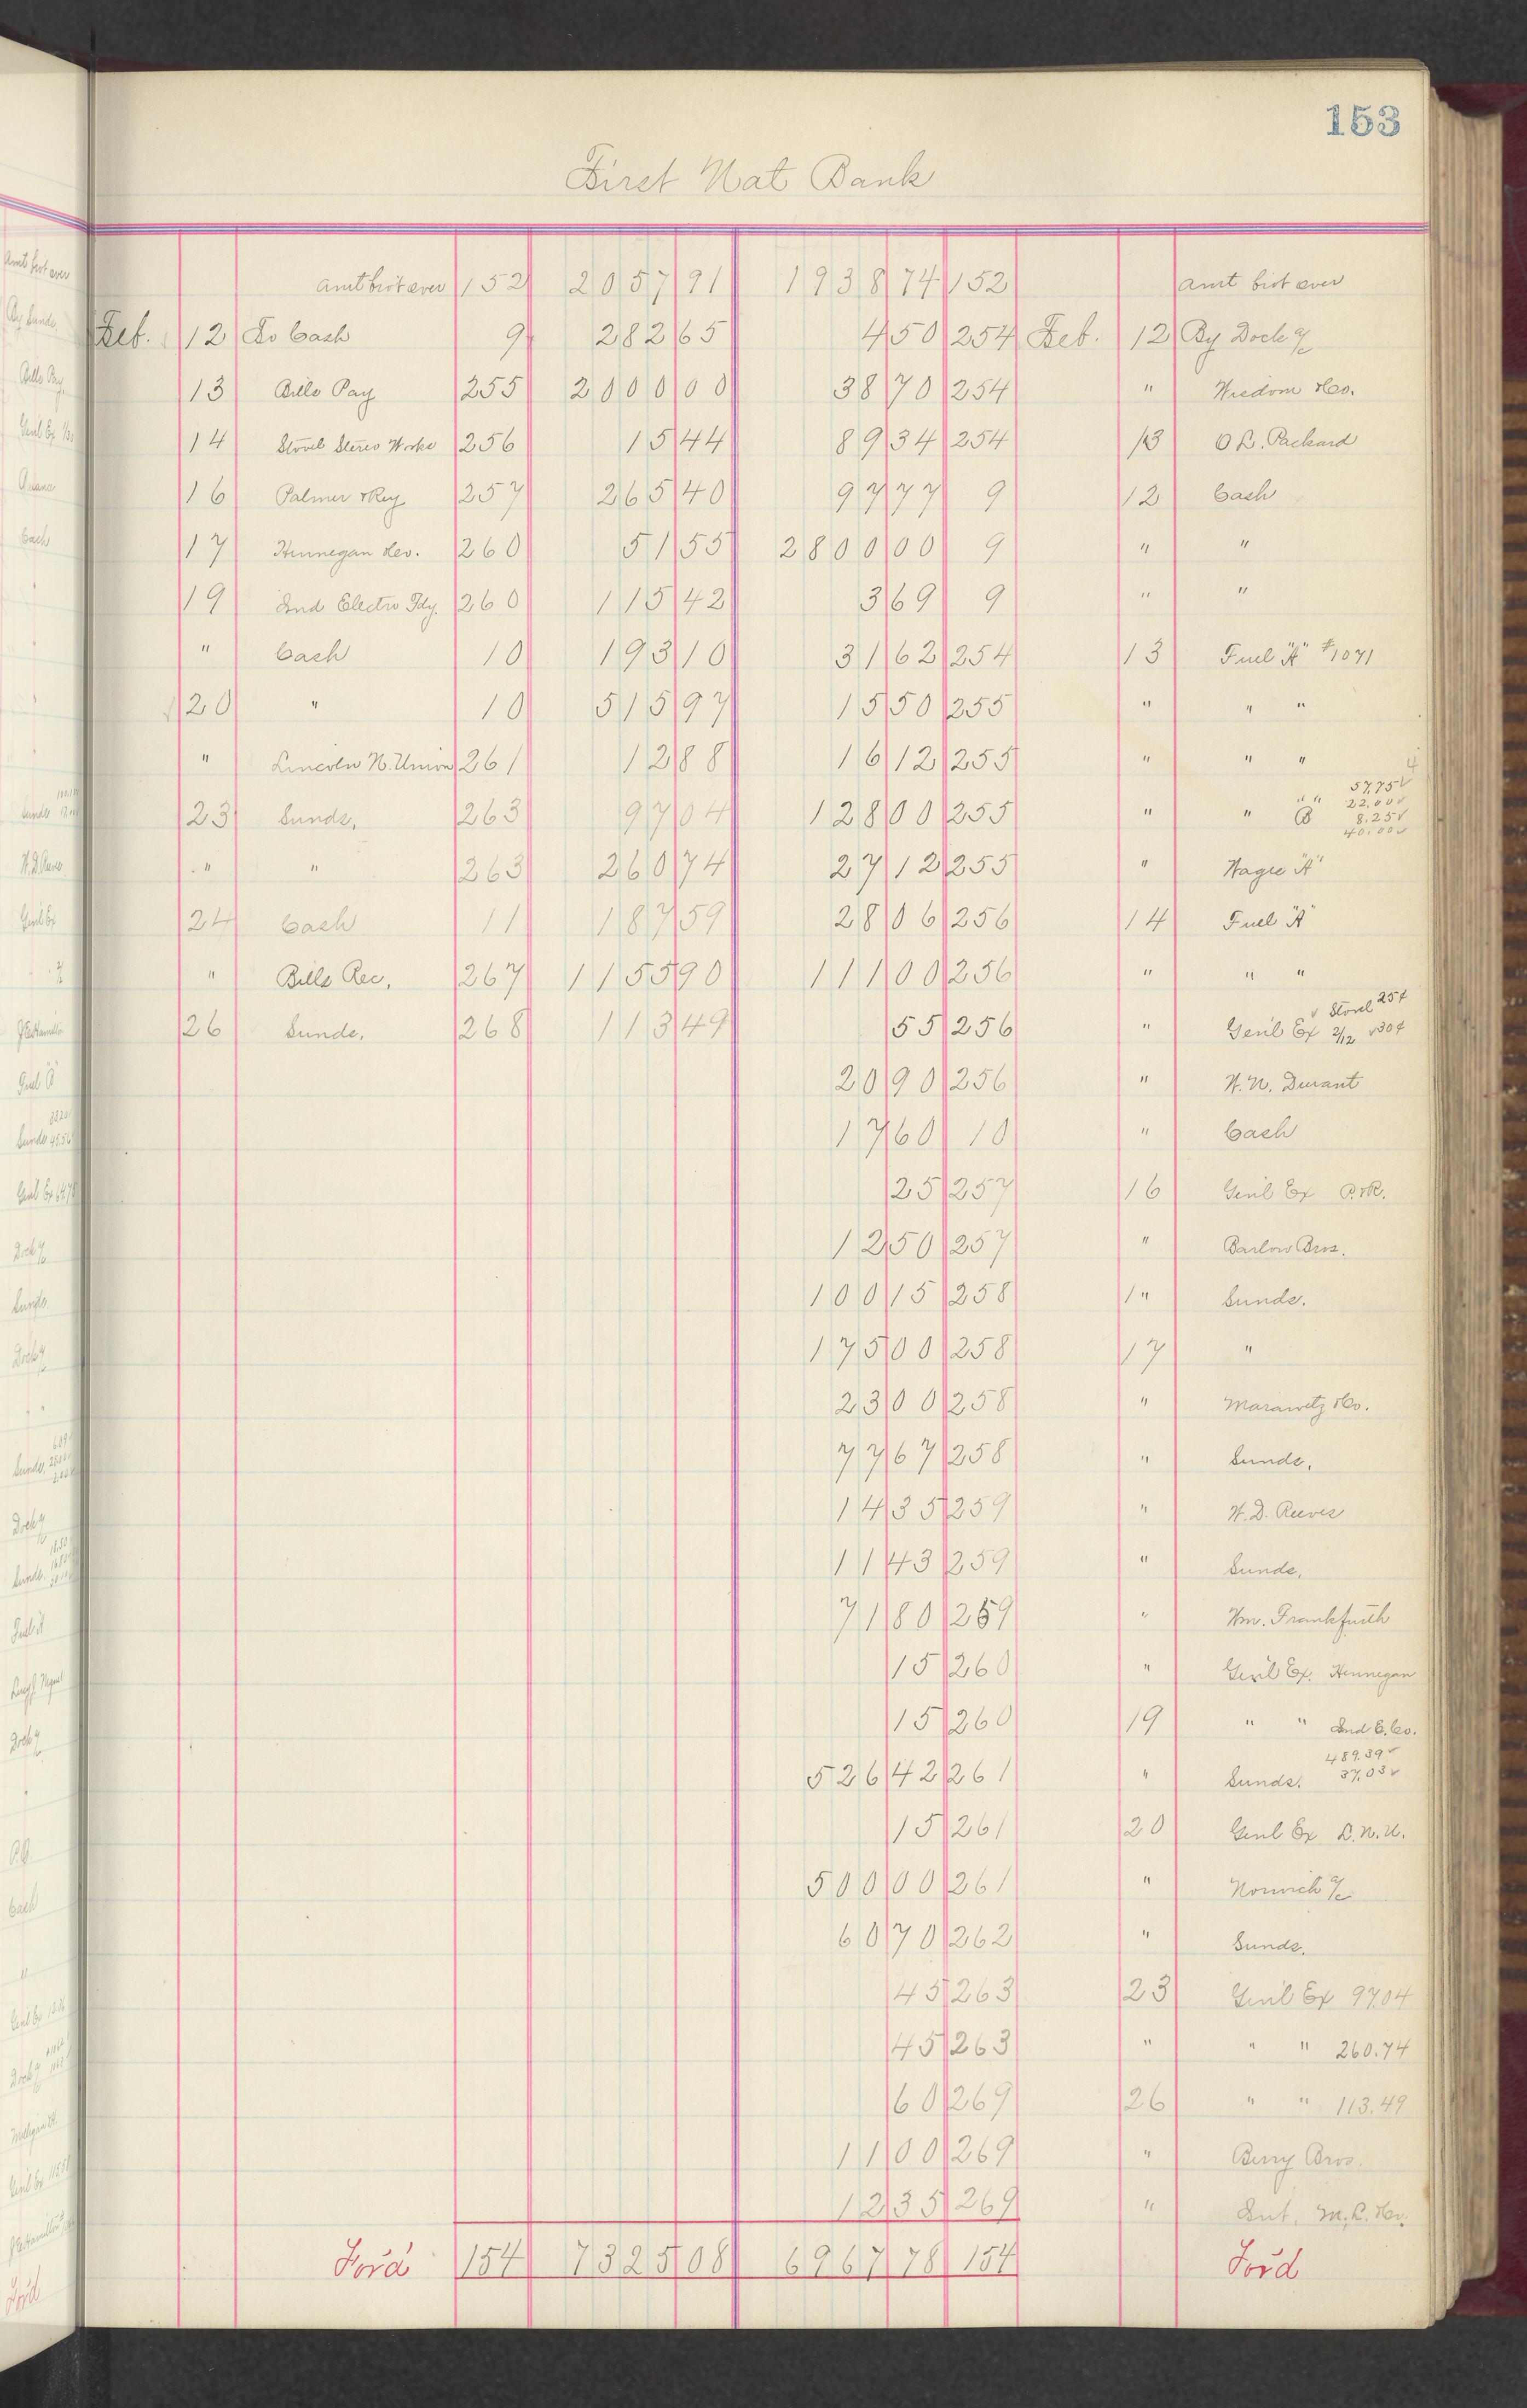 153
First Nat Bank
amt brot over 152 2057 91 1938 74 152 amt brot over
Feb. 12 To Cash 9 282 65 4 50 254 Feb. 12 By Dock a/c
13 Bills Pay 255 2000 00 38 70 254 " Wisdom & Co.
14 Stovel Stereo Works 256 15 44 89 34 254 13 O L. Packard
16 Palmer & Rey 257 265 40 97 77 9 12 Cash
17 Hennegan & Co. 260 51 55 2800 00 9 " "
19 Ind Electro Fdy. 260 115 42 3 69 9 " "
" Cash 10 193 10 31 62 254 13 Fuel "A" #1071
20 " 10 515 97 15 50 255 " " "
" Lincoln N. Union 261 12 88 16 12 255 " " "
23 Sunds. 263 97 04 128 00 255 " " "B" 57.75 22.00 8.25 40.00
" " 263 260 74 27 12 255 " Wages "A"
24 Cash 11 187 59 28 06 256 14 Fuel "A"
" Bills Rec. 267 1155 90 111 00 256 " " "
26 Sunds. 268 113 49 55 256 " Gen'l Ex 2/12 Stovel 25¢ 30¢
20 90 256 " W. N. Durant
17 60 10 " Cash
25 257 16 Gen'l Ex P. & R.
12 50 257 " Barlow Bros.
100 15 258 1" Sunds.
175 00 258 17 "
23 00 258 " Marawetz & Co.
77 67 258 " Sunds.
14 35 259 " W. D. Reeves
11 43 259 " Sunds.
71 80 259 " Wm. Frankfurth
15 260 " Gen'l Ex. Hennegan
15 260 19 " " Ind E. Co.
526 42 261 " Sunds. 489.39 37.03
15 261 20 Genl Ex L. N. U.
500 00 261 " Norwich a/c
60 70 262 " Sunds.
45 263 23 Gen'l Ex 97.04
45 263 " " " 260.74
60 269 26 " " 113.49
11 00 269 " Berry Bros.
12 35 269 " Int. M. L. & Co.
For'd 154 7325 08 6967 78 154 For'd